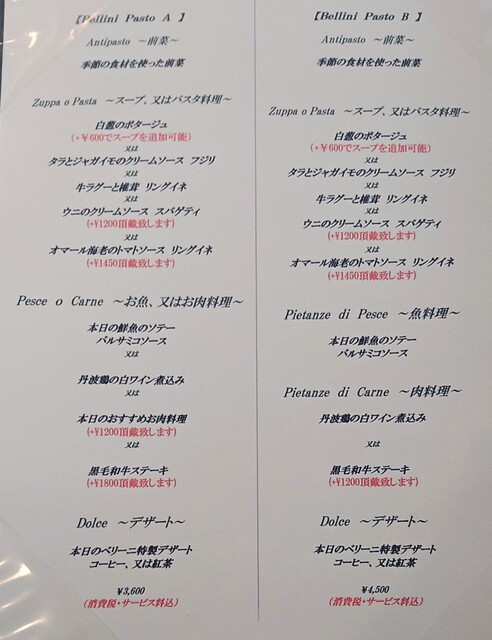 【Bellini Pasto A 】
Antipasto ～前菜～
季節の食材を使った前菜
Zuppa o Pasta ～スープ、又はパスタ料理～
白葱のポタージュ
(+￥600でスープを追加可能)
又は
タラとジャガイモのクリームソース フジリ
又は
牛ラグーと椎茸 リングイネ
又は
ウニのクリームソース スパゲティ
(+¥1200頂戴致します)
又は
オマール海老のトマトソース リングイネ
(+¥1450頂戴致します)
Pesce o Carne ～お魚、又はお肉料理～
本日の鮮魚のソテー
バルサミコソース
又は
丹波鶏の白ワイン煮込み
又は
本日のおすすめお肉料理
(+¥1200頂戴致します)
又は
黒毛和牛ステーキ
(+¥1800頂戴致します)
Dolce ～デザート～
本日のベリーニ特製デザート
コーヒー、又は紅茶
¥3,600
(消費税・サービス料込)
【Bellini Pasto B 】
Antipasto ～前菜～
季節の食材を使った前菜
Zuppa o Pasta ～スープ、又はパスタ料理～
白葱のポタージュ
(+￥600でスープを追加可能)
又は
タラとジャガイモのクリームソース フジリ
又は
牛ラグーと椎茸 リングイネ
又は
ウニのクリームソース スパゲティ
(+¥1200頂戴致します)
又は
オマール海老のトマトソース リングイネ
(+¥1450頂戴致します)
Pietanze di Pesce ～魚料理～
本日の鮮魚のソテー
バルサミコソース
Pietanze di Carne ～肉料理～
丹波鶏の白ワイン煮込み
又は
黒毛和牛ステーキ
(+¥1200頂戴致します)
Dolce ～デザート～
本日のベリーニ特製デザート
コーヒー、又は紅茶
¥4,500
(消費税・サービス料込)